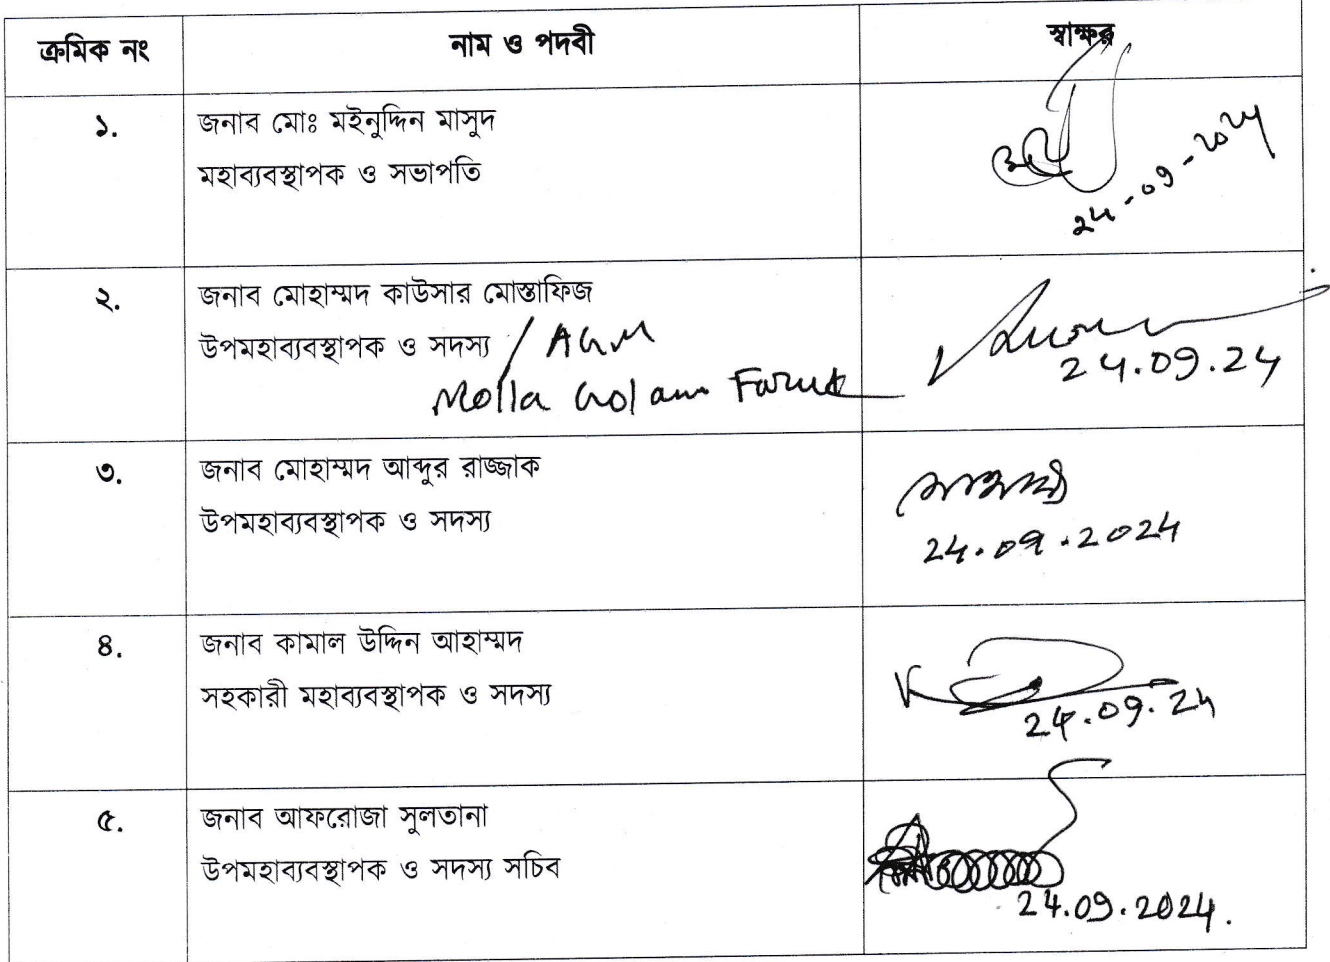 ক্রমিক নং নাম ও পদবী স্বাক্ষর
১. জনাব মোঃ মইনুদ্দিন মাসুদ
মহাব্যবস্থাপক ও সভাপতি
24-09-2024
২. জনাব মোহাম্মদ কাউসার মোস্তাফিজ
উপমহাব্যবস্থাপক ও সদস্য / AGM
24.09.24
Molla Golam Faruk
৩. জনাব মোহাম্মদ আব্দুর রাজ্জাক
উপমহাব্যবস্থাপক ও সদস্য
24.09.2024
৪. জনাব কামাল উদ্দিন আহাম্মদ
সহকারী মহাব্যবস্থাপক ও সদস্য
24.09.24
৫. জনাব আফরোজা সুলতানা
উপমহাব্যবস্থাপক ও সদস্য সচিব
24.09.2024.